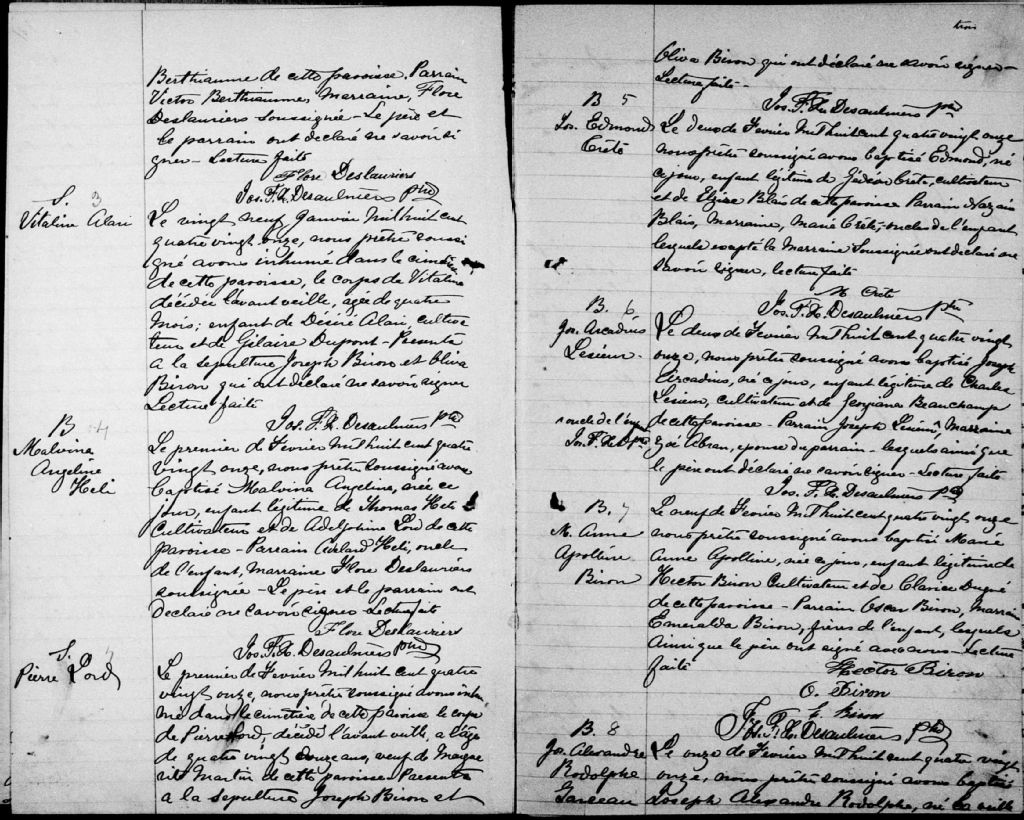 Berthiaume de cette paroisse, Parrain
Victor Berthiaume, Marraine, Flore
Deslauriers soussignée - Le père et
le parrain ont déclaré ne savoir si
gner - Lecture faite
Flore Deslauriers
Jos. F. X. Desaulniers Ptre
S. 3
Vitaline Alari
Le vingt neuf Janvier mil huit cent
quatre vingt onze, nous prêtre soussi
gné avons inhumé dans le cimetière
de cette paroisse, le corps de Vitaline
décédée l'avant veille, agée de quatre
mois; enfant de Désiré Alari, cultiva
teur et de Gélaire Dupont - Présents
a la sepulture Joseph Biron et Oliva
Biron qui ont déclaré ne savoir signer
Lecture faite
Jos. F. X. Desaulniers Ptre
B 4
Malvina
Angeline
Heli
Le premier de Fevrier mil huit cent quatre
vingt onze, nous prêtre soussigné avons
baptisé Malvina Angeline, née ce
jour, enfant légitime de Thomas Heli
Cultivateur et de Adelphine Lord de cette
paroisse - Parrain Heli, oncle
de l'enfant, Marraine Flore Deslauriers
soussignée - Le père et le parrain ont
declaré ne savoir signer - Lecture faite
Flore Deslauriers
Jos. F. X. Desaulniers Ptre
S.
Pierre Lord
Le premier de Fevrier mil huit cent quatre
vingt onze, nous prêtre soussigné avons inhu
mé dans le cimetière de cette paroisse le corps
de Pierre Lord, décédé l'avant veille, a l'age
de quatre vingt ans, veuf de Margue
rite Martin de cette paroisse. Presents
a la sepulture Joseph Biron et
trois
Oliva Biron qui ont déclaré ne savoir signer -
Lecture faite -
Jos. F. X. Desaulniers Ptre
B 5
Jos. Edmond
Crête
Le deux de Fevrier mil huit cent quatre vingt onze
nous prêtre soussigné avons baptisé Edmond, né
ce jour, enfant légitime de Gédéon Crête, cultivateur
et de Elise Blais de cette paroisse Parrain Nazaire
Blais, Marraine, Marie Crête; oncles de l'enfant
lesquels excepté la Marraine Soussignée ont déclaré ne
savoir signer, lecture faite
M Crete
Jos. F. X. Desaulniers Ptre
B. 6
Jos. Arcadius
Lesieur
Le deux de Fevrier mil huit cent quatre vingt
onze, nous prêtre soussigné avons baptisé Joseph
Arcadius, né ce jour, enfant légitime de Charles
Lesieur, cultivateur et de Georgiana Beauchamp
de cette paroisse - Parrain Joseph Lesieur, Marraine
Zoé Abran, epouse du parrain - lesquels ainsi que
le père ont déclaré ne savoir signer - Lecture faite
oncle de l'enfant
Jos. F. X. D. Ptre
Jos. F. X. Desaulniers Ptre
B. 7
M. Anne
Apolline
Biron
Le neuf de Fevrier mil huit cent quatre vingt onze
nous prêtre soussigné avons baptisé Marie
Anne Apolline, née ce jour, enfant légitime de
Hector Biron Cultivateur et de Clarice Dugré
de cette paroisse - Parrain Oscar Biron, Marraine
Emeralda Biron, frères de l'enfant, lesquels
Ainsi que le père ont signé avec nous - Lecture
faite
Hector Biron
O. Biron
E. Biron
Jos. F. X. Desaulniers Ptre
B. 8
Jos. Alexandre
Rodolphe
Garceau
Le onze de Fevrier mil huit cent quatre vingt
onze, nous prêtre soussigné avons baptisé
Joseph Alexandre Rodolphe, né la veille